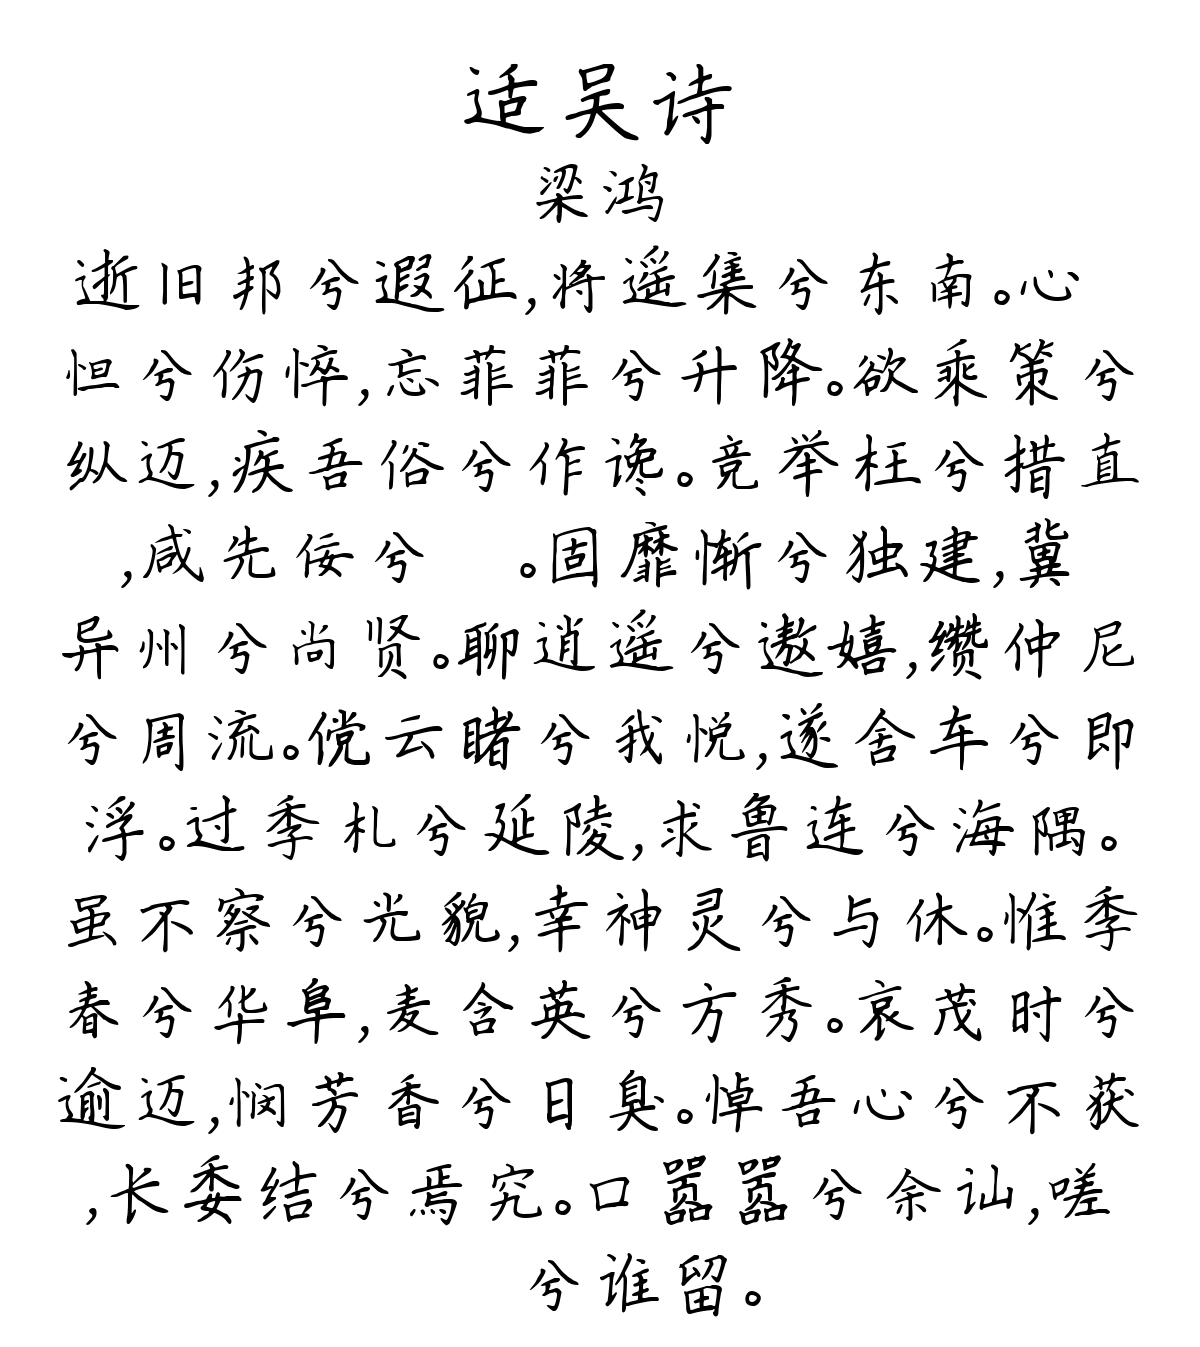 适吴诗
梁鸿
逝旧邦兮遐征,将遥集兮东南。心
怛兮伤悴,忘菲菲兮升降。欲乘策兮
纵迈,疾吾俗兮作谗。竞举枉兮措直
,咸先佞兮 。固靡惭兮独建,冀
异州兮尚贤。聊逍遥兮遨嬉,缵仲尼
兮周流。傥云睹兮我悦,遂舍车兮即
浮。过季札兮延陵,求鲁连兮海隅。
虽不察兮光貌,幸神灵兮与休。惟季
春兮华阜,麦含英兮方秀。哀茂时兮
逾迈,悯芳香兮日臭。悼吾心兮不获
,长委结兮焉究。口嚣嚣兮余讪,嗟
兮谁留。